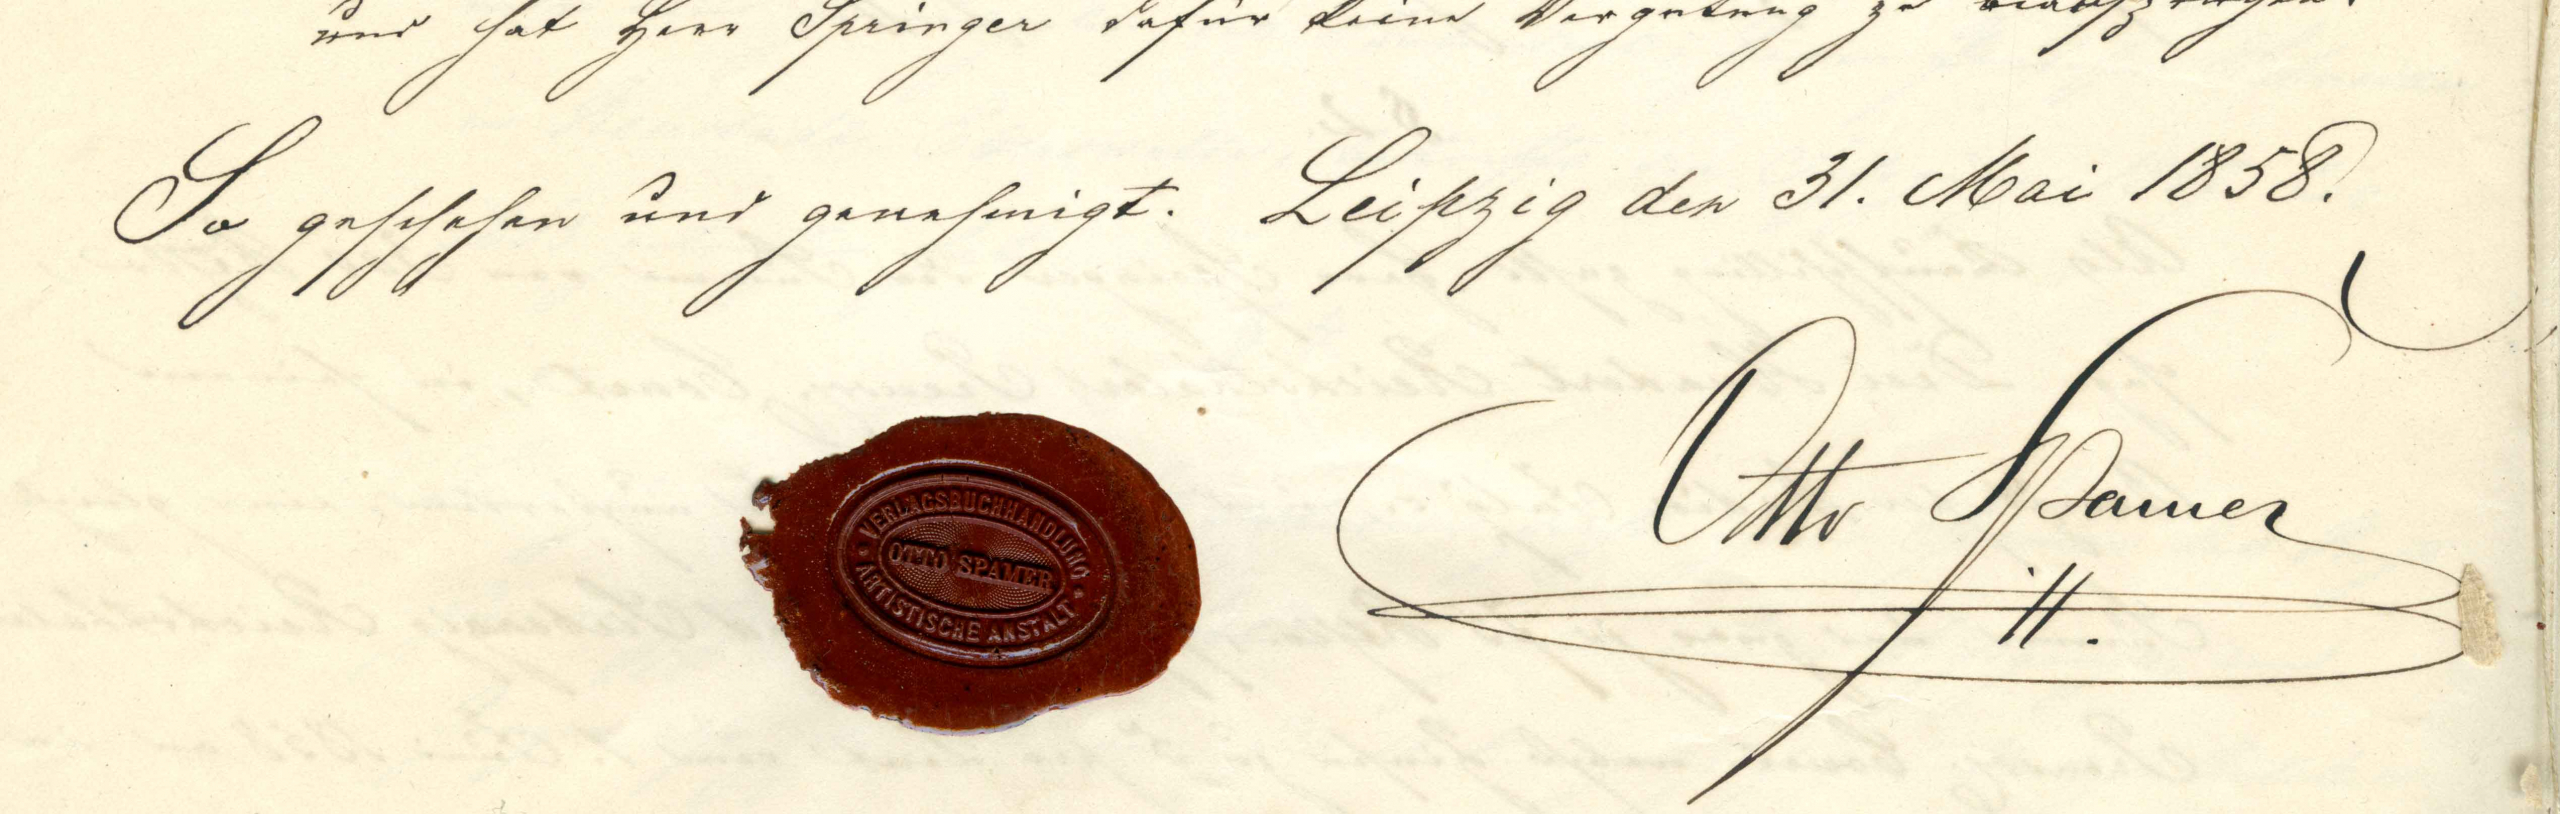 und hat Herr Springer dafür keine Vergütung zu beanspruchen.
So geschehen und genehmigt. Leipzig den 31. Mai 1858.
Otto Spamer
VERLAGSBUCHHANDLUNG
OTTO SPAMER
ARTISTISCHE ANSTALT